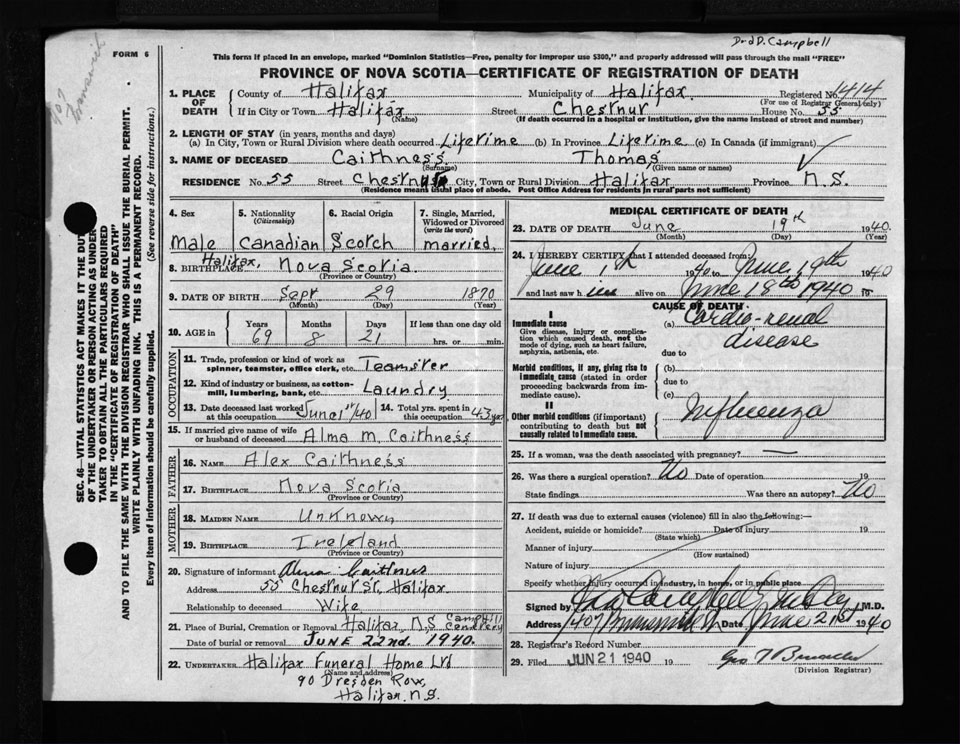 Dr J D. Campbell
FORM 6
This form if placed in an envelope, marked "Dominion Statistics—Free, penalty for improper use $300," and properly addressed will pass through the mail "FREE"
PROVINCE OF NOVA SCOTIA—CERTIFICATE OF REGISTRATION OF DEATH
1. PLACE OF DEATH County of Halifax Municipality of Halifax Registered No. 1414
(For use of Registrar General only)
If in City or Town Halifax Street Chestnut House No. 55
(Name) (If death occurred in a hospital or institution, give the name instead of street and number)
2. LENGTH OF STAY (in years, months and days)
(a) In City, Town or Rural Division where death occurred Lifetime (b) In Province Lifetime (c) In Canada (if immigrant)
3. NAME OF DECEASED Caithness Thomas
(Surname) (Given name or names)
RESIDENCE No. 55 Street Chestnut City, Town or Rural Division Halifax Province N.S.
(Residence means usual place of abode. Post Office Address for residents in rural parts not sufficient)
4. Sex Male
5. Nationality (Citizenship) Canadian
6. Racial Origin Scotch
7. Single, Married, Widowed or Divorced (write the word) married
8. BIRTHPLACE Halifax, Nova Scotia
(Province or Country)
9. DATE OF BIRTH Sept 29 1870
(Month) (Day) (Year)
10. AGE in Years 69 Months 8 Days 21 If less than one day old hrs. or min.
OCCUPATION
11. Trade, profession or kind of work as spinner, teamster, office clerk, etc. Teamster
12. Kind of industry or business, as cotton-mill, lumbering, bank, etc. Laundry
13. Date deceased last worked at this occupation June 1st/40 14. Total yrs. spent in this occupation 43 yrs
15. If married give name of wife or husband of deceased Alma M. Caithness
FATHER
16. NAME Alex Caithness
17. BIRTHPLACE Nova Scotia
(Province or Country)
MOTHER
18. MAIDEN NAME Unknown
19. BIRTHPLACE Ireland
(Province or Country)
20. Signature of informant Alma Caithness
Address 55 Chestnut St, Halifax
Relationship to deceased Wife
21. Place of Burial, Cremation or Removal Halifax, N.S. Camp Hill Cemetery
Date of burial or removal JUNE 22nd. 1940.
22. UNDERTAKER Halifax Funeral Home Ltd
(Name and address)
90 Dresden Row,
Halifax. N.S.
MEDICAL CERTIFICATE OF DEATH
23. DATE OF DEATH June 19th 1940
(Month) (Day) (Year)
24. I HEREBY CERTIFY that I attended deceased from:
June 1st 1940 to June 19th 1940
and last saw him alive on June 18th 1940 19
CAUSE OF DEATH
I
Immediate cause
Give disease, injury or complication which caused death, not the mode of dying, such as heart failure, asphyxia, asthenia, etc.
(a) Cardio-renal disease
due to
Morbid conditions, if any, giving rise to immediate cause (stated in order proceeding backwards from immediate cause)
(b)
due to
(c)
II
Other morbid conditions (if important) contributing to death but not causally related to immediate cause.
Influenza
25. If a woman, was the death associated with pregnancy? —
26. Was there a surgical operation? No Date of operation 19
State findings Was there an autopsy? No
27. If death was due to external causes (violence) fill in also the following:—
Accident, suicide or homicide? Date of injury 19
(State which)
Manner of injury
(How sustained)
Nature of injury
Specify whether injury occurred in industry, in home, or in public place
Signed by Campbell M.D.
Address 407 Brunswick St Date June 21st 1940
28. Registrar's Record Number
29. Filed JUN 21 1940 19
(Division Registrar)
SEC. 46—VITAL STATISTICS ACT MAKES IT THE DUTY OF THE UNDERTAKER OR PERSON ACTING AS UNDERTAKER TO OBTAIN ALL THE PARTICULARS REQUIRED IN THE "CERTIFICATE OF REGISTRATION OF DEATH" AND TO FILE THE SAME WITH THE DIVISION REGISTRAR WHO SHALL ISSUE THE BURIAL PERMIT.
WRITE PLAINLY WITH UNFADING INK. THIS IS A PERMANENT RECORD.
Every item of information should be carefully supplied. (See reverse side for instructions.)